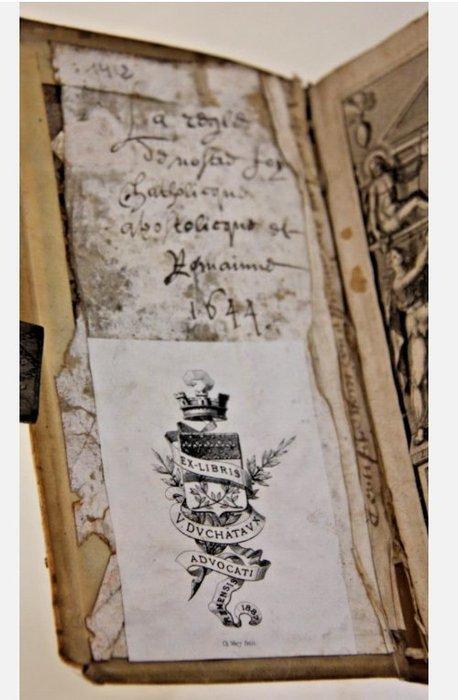 La regle
De nostre foy
Chatholicque
apostolicque et
Romainne
1644
EX-LIBRIS
V. DVCHATAVX
ADVOCATI
REMENSIS
1887